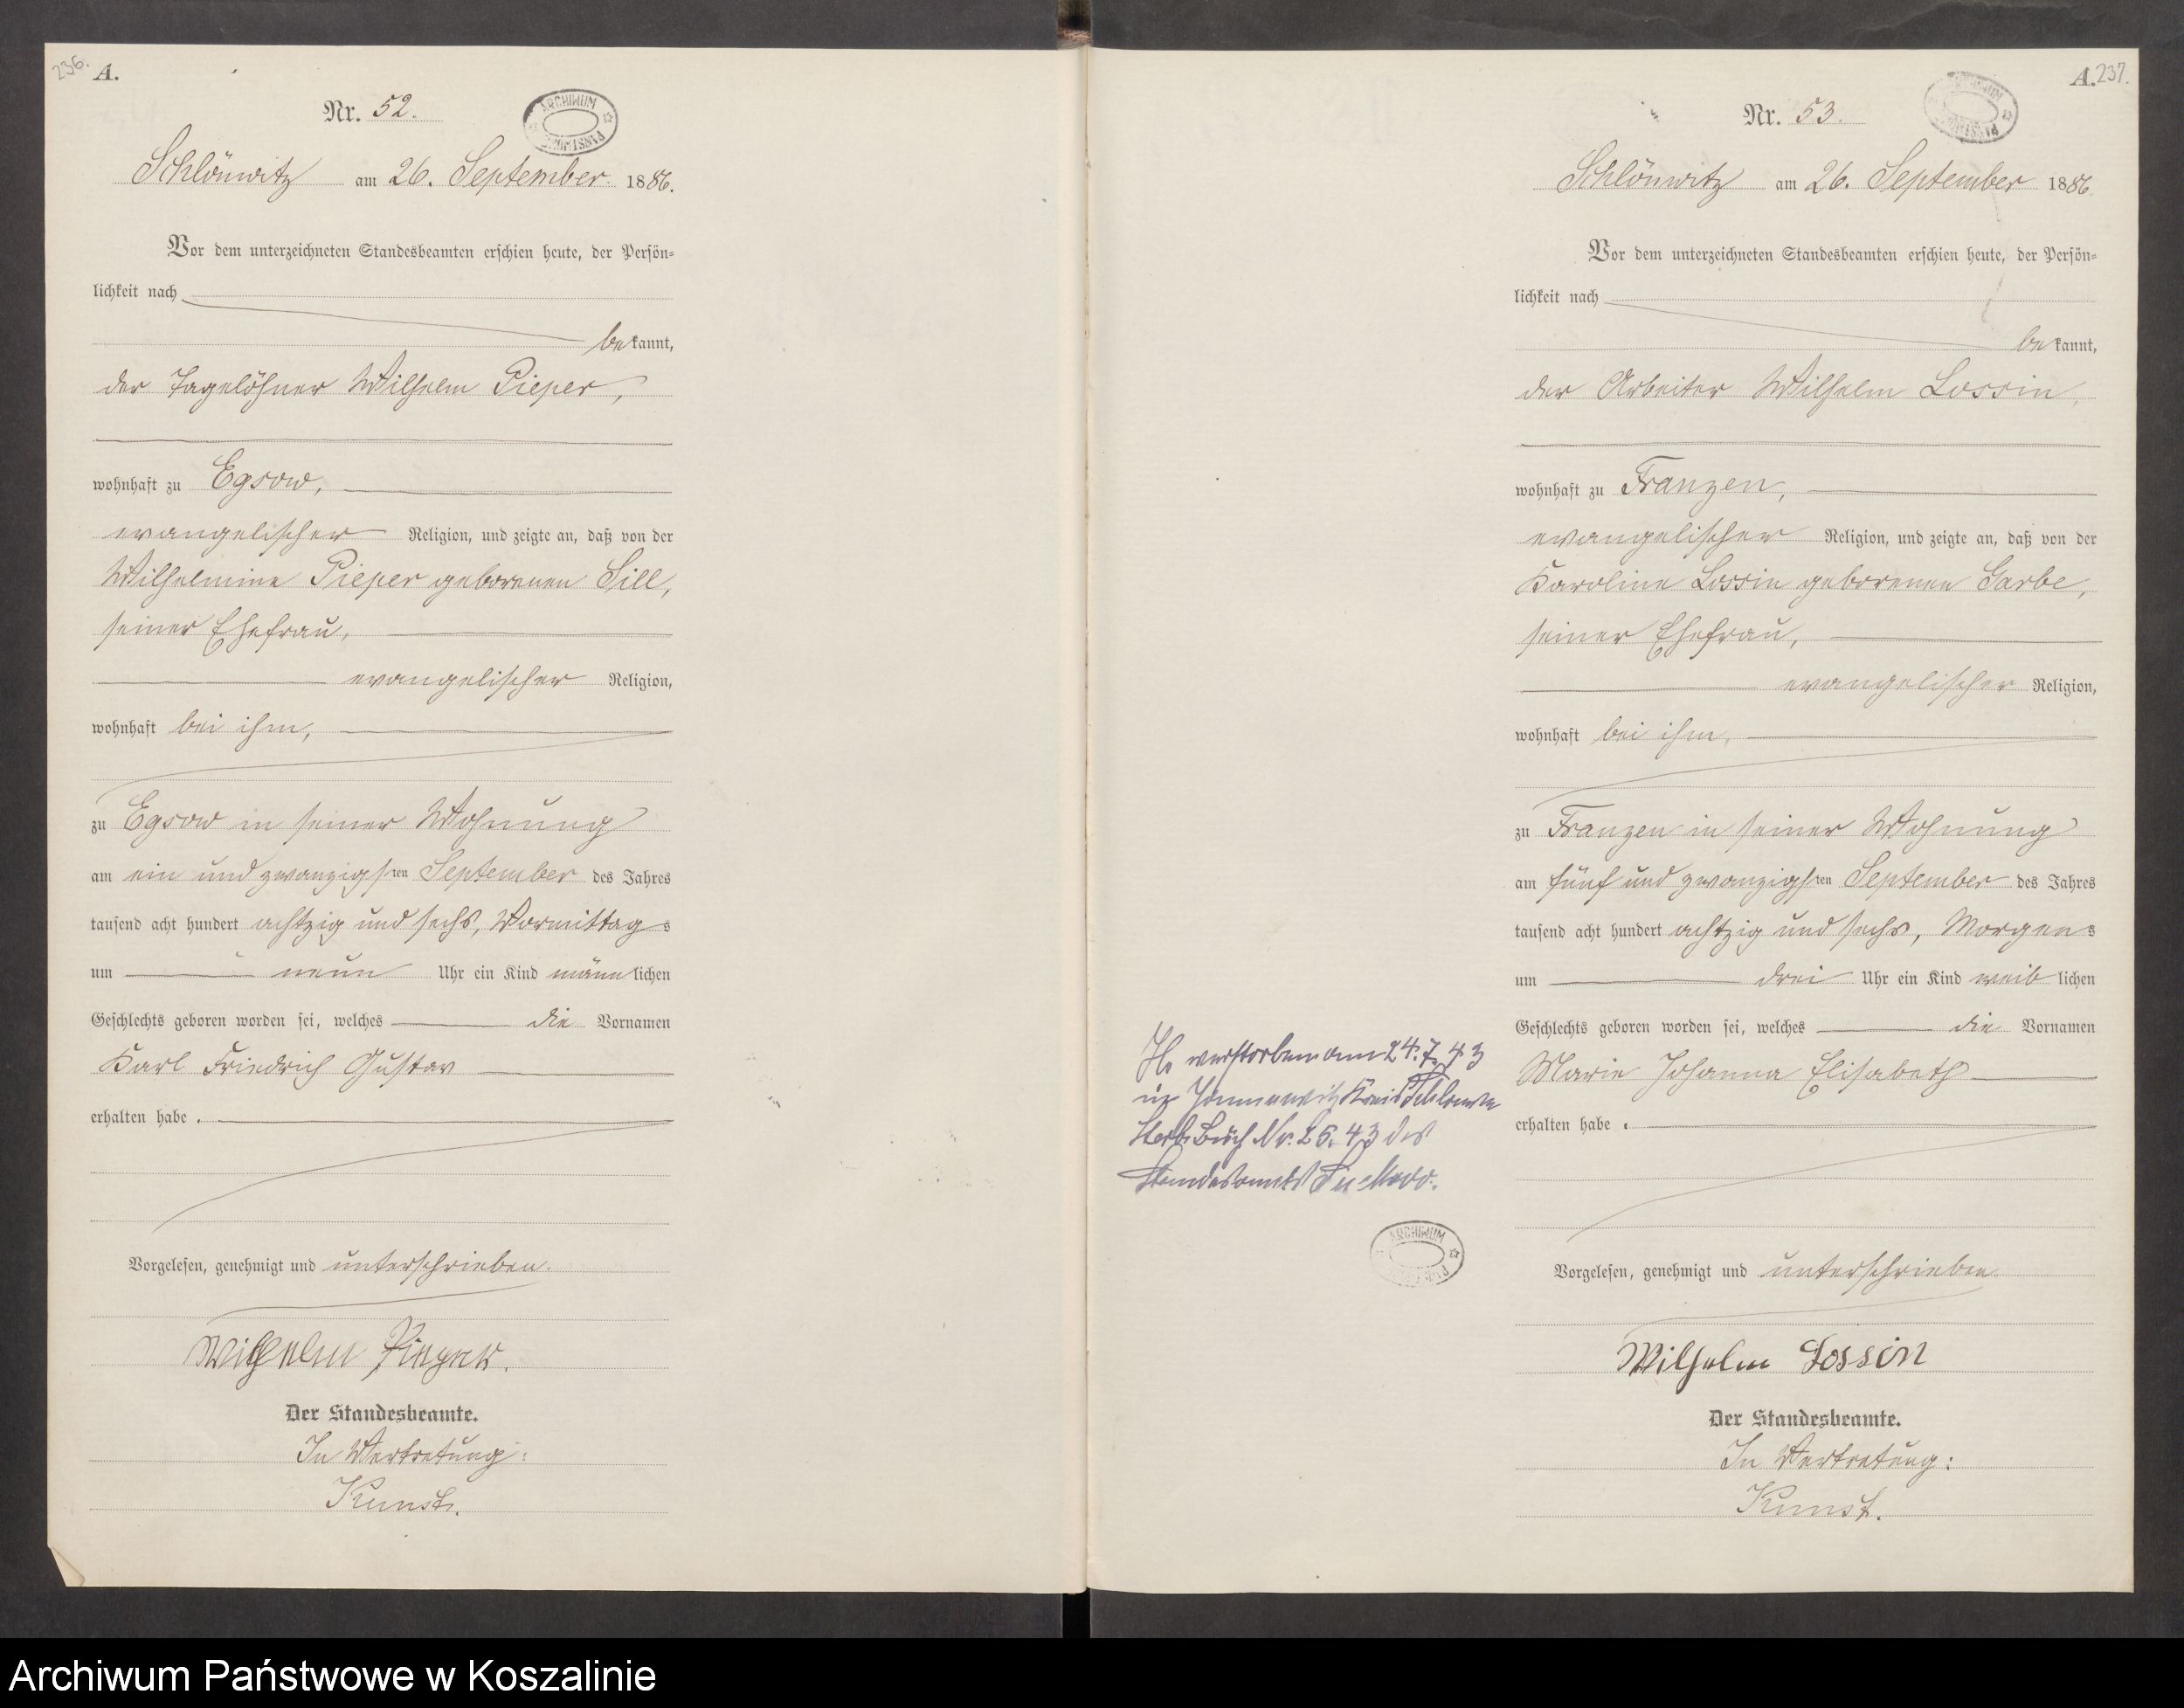 236.
A.
Nr. 52.
ARCHIWUM
PAŃSTWOWE
Schlönwitz am 26. September 1886.
Vor dem unterzeichneten Standesbeamten erschien heute, der Persön-
lichkeit nach
bekannt,
der Tagelöhner Wilhelm Pieper,
wohnhaft zu Egsow,
evangelischer Religion, und zeigte an, daß von der
Wilhelmine Pieper geborenen Sill,
seiner Ehefrau,
evangelischer Religion,
wohnhaft bei ihm,
zu Egsow in seiner Wohnung
am ein und zwanzigsten September des Jahres
tausend acht hundert achtzig und sechs, Vormittags
um neun Uhr ein Kind männlichen
Geschlechts geboren worden sei, welches die Vornamen
Karl Friedrich Gustav
erhalten habe.
Vorgelesen, genehmigt und unterschrieben.
Wilhelm Pieper.
Der Standesbeamte.
In Vertretung:
Kunst.
A. 237.
Nr. 53.
ARCHIWUM
PAŃSTWOWE
Schlönwitz am 26. September 1886
Vor dem unterzeichneten Standesbeamten erschien heute, der Persön-
lichkeit nach
bekannt,
der Arbeiter Wilhelm Lossin,
wohnhaft zu Franzen,
evangelischer Religion, und zeigte an, daß von der
Karoline Lossin geborenen Garbe,
seiner Ehefrau,
evangelischer Religion,
wohnhaft bei ihm,
zu Franzen in seiner Wohnung
am fünf und zwanzigsten September des Jahres
tausend acht hundert achtzig und sechs, Morgens
um drei Uhr ein Kind weiblichen
Geschlechts geboren worden sei, welches die Vornamen
Marie Johanna Elisabeth
erhalten habe.
verstorben am 24.7.43
in Kreis Schlawe
Sterb. Buch Nr. 25.43 des
Standesamts
ARCHIWUM
Vorgelesen, genehmigt und unterschrieben
Wilhelm Lossin
Der Standesbeamte.
In Vertretung:
Kunst.
Archiwum Państwowe w Koszalinie